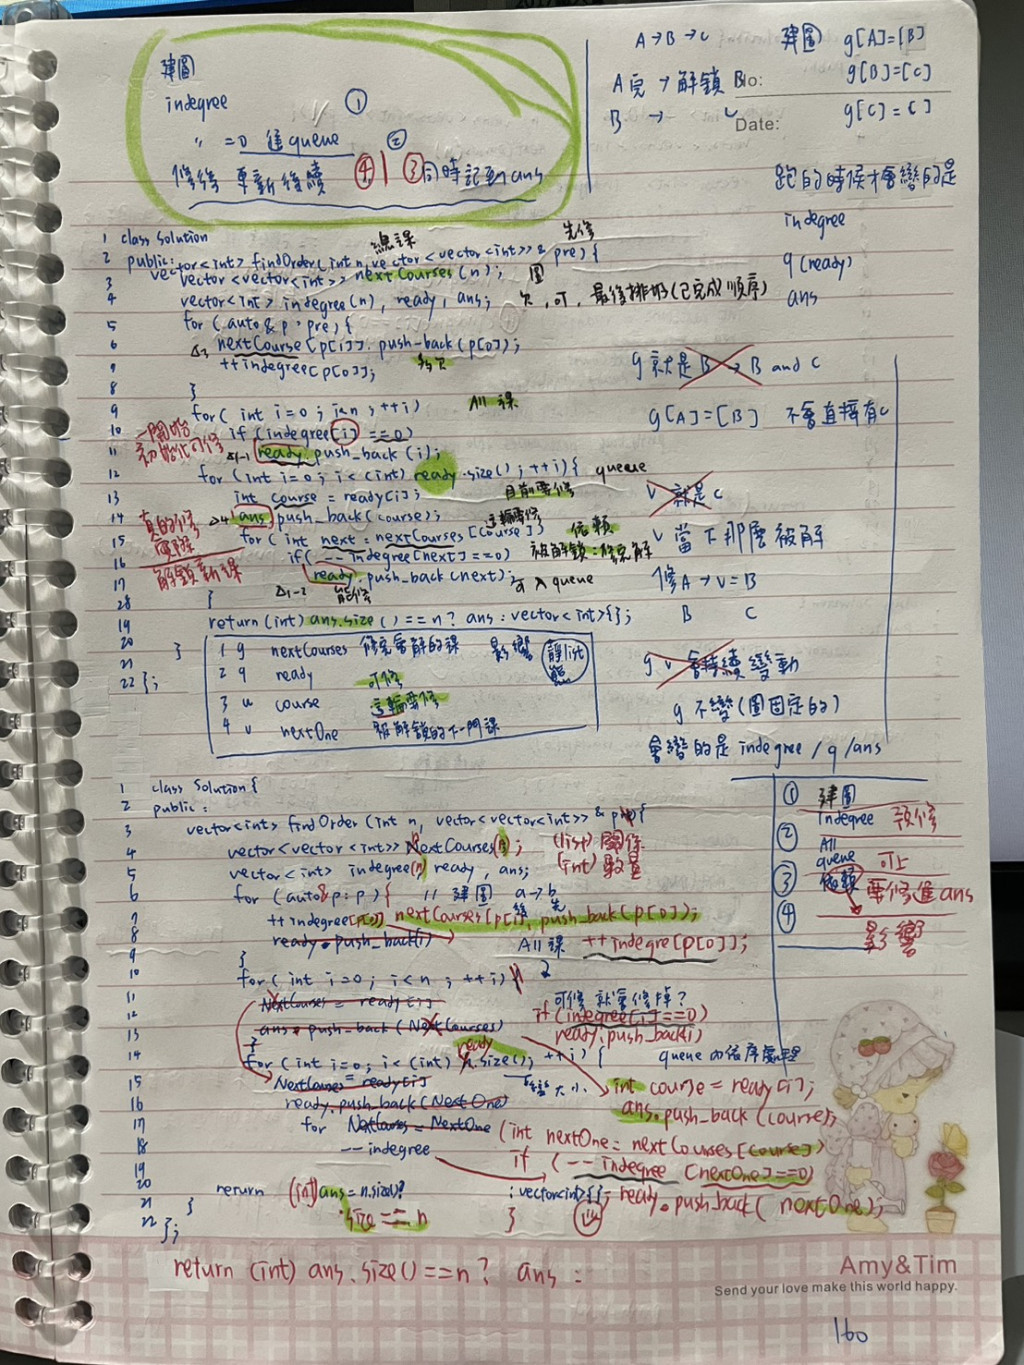 建圖
indegree ①
〃 =0 進queue ②
修後 更新後續 ④ | ③同時記到ans
A→B→C 建圖 g[A]=[B]
A完 → 解鎖 B g[B]=[C]
No:
B → C g[C]=[]
Date:
跑的時候才會變的是
indegree
q(ready)
ans
1 class Solution
總課 先修
2 public:
vector<int> findOrder(int n, vector<vector<int>>& pre){
3 vector<vector<int>> nextCourses(n); 圖
4 vector<int> indegree(n), ready, ans; 欠,可,最後排好(已完成順序)
5 for(auto& p : pre){
6 nextCourse[p[1]].push_back(p[0]);
7 ++indegree[p[0]];
8 }
9 for( int i=0 ; i<n ; ++i) All 課
10 if (indegree[i] ==0)
11 ready.push_back(i);
一開始
初始化可修
12 for(int i=0; i<(int) ready.size(); ++i){ queue
13 int course = ready[i]; 目前要修
14 ans.push_back(course); 這輪要修
15 for( int next : nextCourses[course]) 依賴
16 if( --indegree[next]==0) 被解鎖:修完解
17 ready.push_back(next); 可入queue
能修
真的修
解鎖新課
28 }
19 return(int) ans.size()==n? ans : vector<int>{};
20 }
21
22 };
1 g nextCourses 修完會解的課 影響
2 q ready 可修
3 u course 這輪要修
4 v nextOne 被解鎖的下一門課
g 就是 B → B and C
g[A]=[B] 不會直接有C
v 就是C
v 當下那麼被解
修A → v = B
B C
g v 會持續變動
g 不變(圖固定的)
會變的是 indegree / q / ans
① 建圖
indegree 預修
② All
queue 可上
③ 依賴 要修進ans
④ 影響
1 class Solution{
2 public:
3 vector<int> findOrder (int n, vector<vector<int>> & p){
4 vector<vector<int>> NextCourses(n); (list) 關係
5 vector<int> indegree(n) ready, ans; (int) 數量
6 for (auto& p: p) { // 建圖 a→b
後 先
7 ++indegree[p[0]] nextCourses[p[1]].push_back(p[0]);
8 ready.push_back(i) All 課 ++indegre[p[0]];
9 }
10 for( int i=0; i<n ; ++i)
11 NextCourses = ready[i] 可修 就會修掉?
12 ans.push_back(NextCourses) if (indegree[i]==0)
13 } ready.push_back(i)
ready
14 for(int i=0; i<(int) .size(); ++i) { queue 內依序處理
15 NextCourses = ready[i] 大小 int course = ready[i];
16 ready.push_back(NextOne) ans.push_back(course);
17 for NextCourses = NextOne (int nextOne= nextCourses[course])
18 --indegree if (--indegree [nextOne]==0)
19
20 return (int)ans = n.size()? : vector<int>{}; ready.push_back( nextOne);
21 } size == n }
22 };
return (int) ans.size()==n? ans :
Amy&Tim
Send your love make this world happy.
160